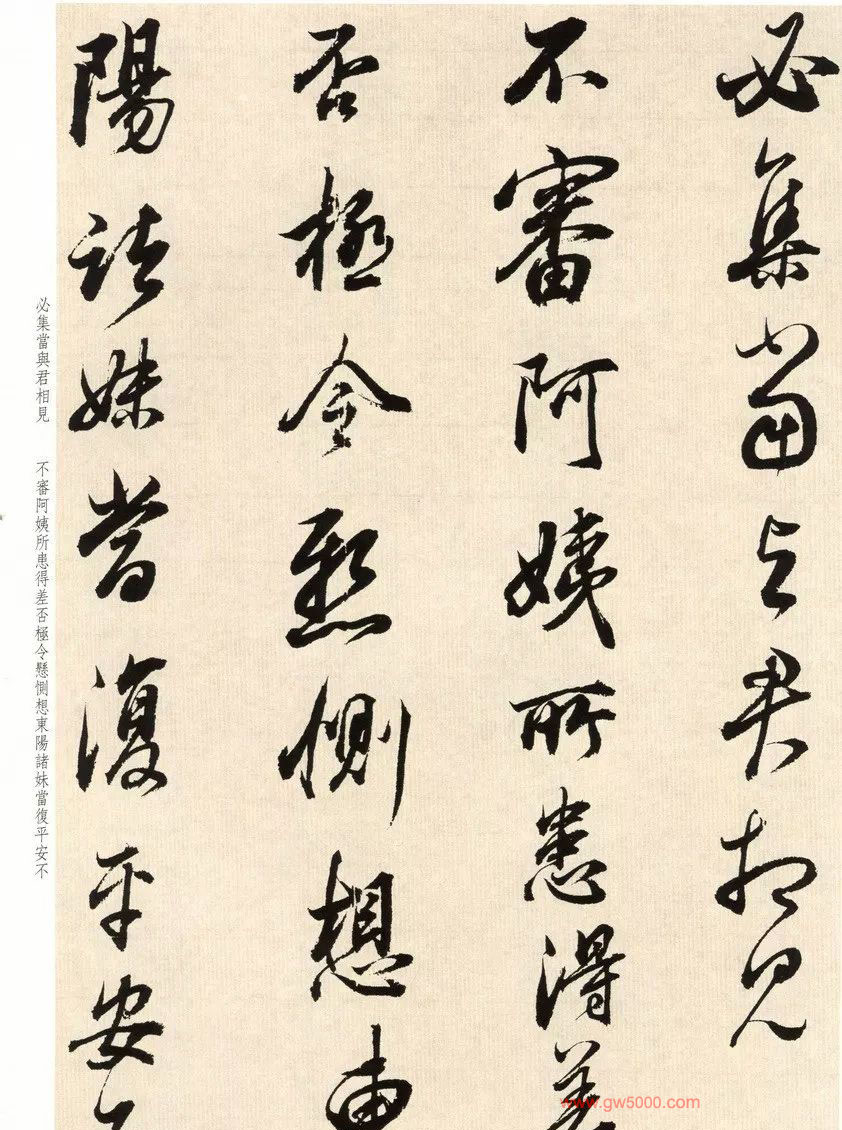 必集當與君相見
不審阿姨所患得差
否極令懸惻想東
陽諸妹當復平安不
必集當與君相見　不審阿姨所患得差否極令懸惻想東陽諸妹當復平安不
www.gw5000.com